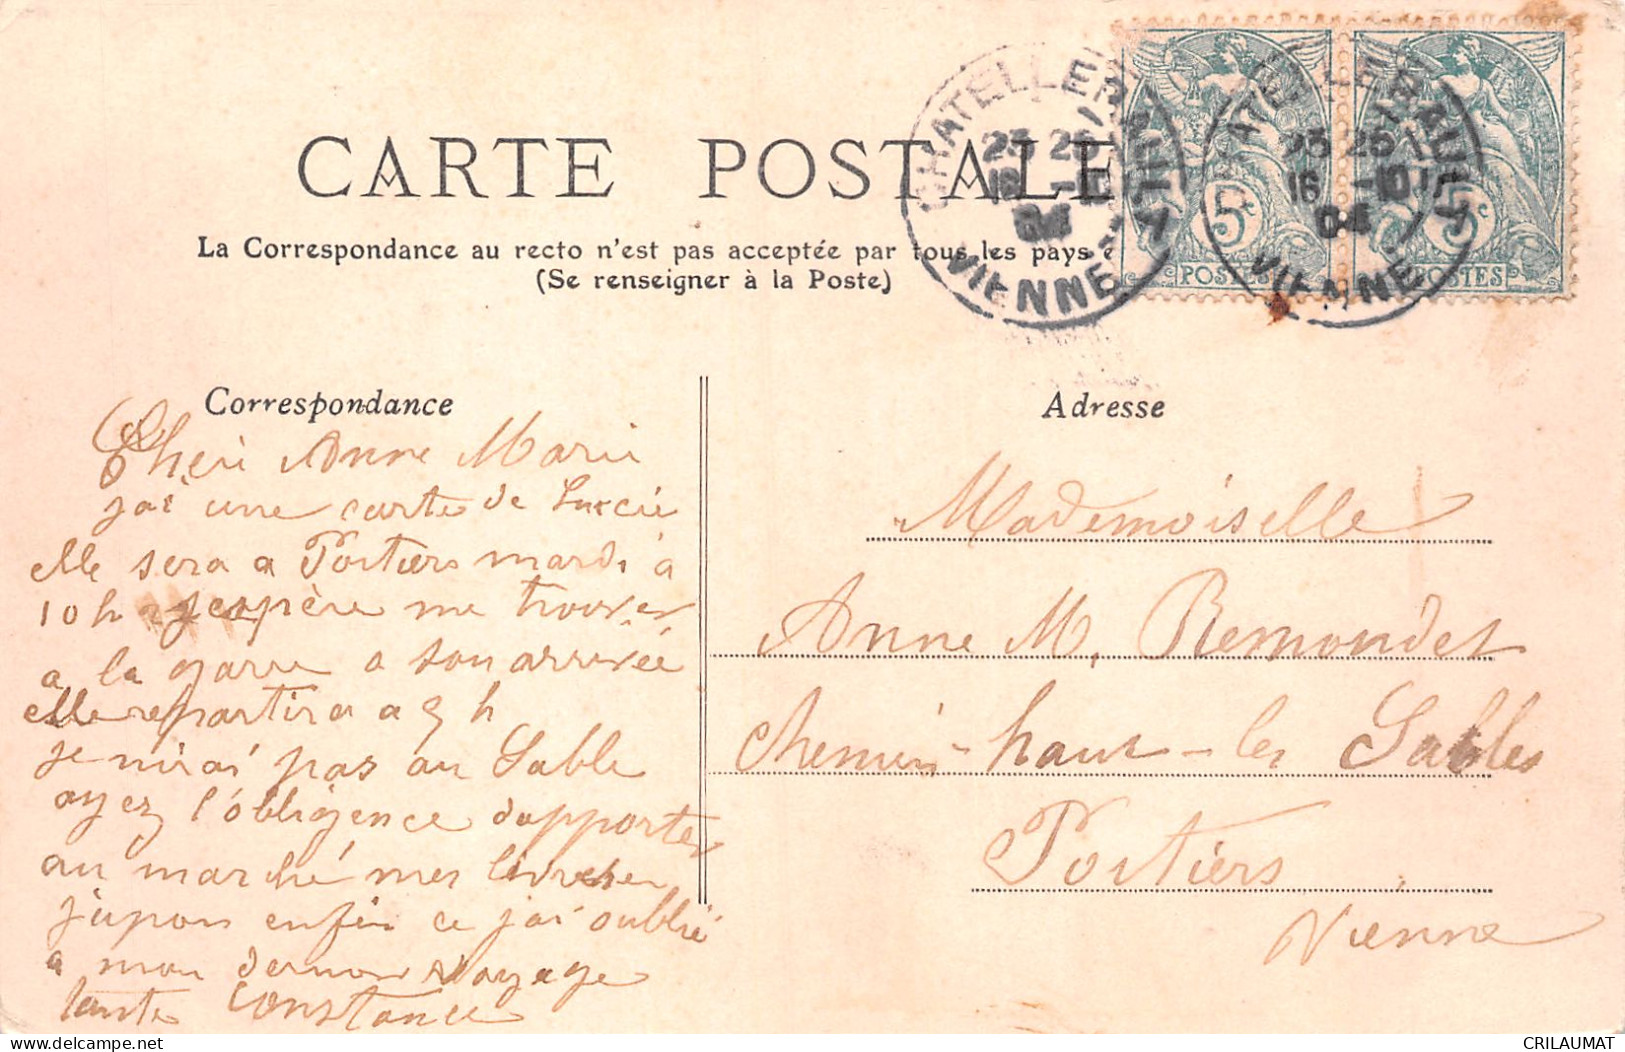 CARTE POSTALE
La Correspondance au recto n'est pas acceptée par tous les pays
(Se renseigner à la Poste)
CHATELLERAULT
23 25
16 -10
04
VIENNE
CHATELLERAULT
23 25
16 -10
04
VIENNE
5c
POSTES
5c
POSTES
Correspondance
Chéri Anne Marie
jai une carte de Luccie
elle sera a Poitiers mardi a
10h jespère me trouver
a la garre a son arrivée
elle repartira a 5 h
je nirai pas au Sable
ayez l'obligence dapporter
au marché mes
jupon enfin ce jai oublié
a mon dernier voyage
tante Constance
Adresse
Mademoiselle
Anne M. Remondet
Chemin-haut-les Sables
Poitiers
Vienne
CRILAUMAT